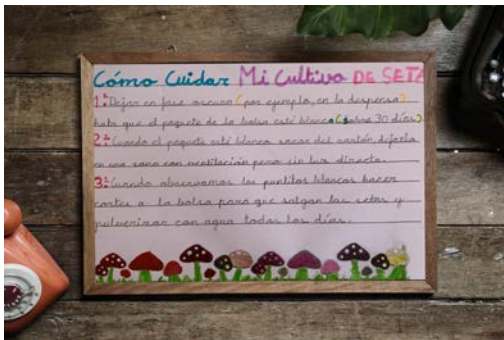 Cómo Cuidar Mi Cultivo DE SETA
1º: Dejar en fase oscura (por ejemplo, en la despensa)
hata que el paquete de la bolsa esté blanco (sobre 30 días).
2º: Cuando el paquete esté blanco sacar del cartón, dejarla
en una zona con ventilación pero sin luz directa.
3º: Cuando observamos los puntitos blancos hacer
cortes a la bolsa para que salgan las setas y
pulverizar con agua todos los días.